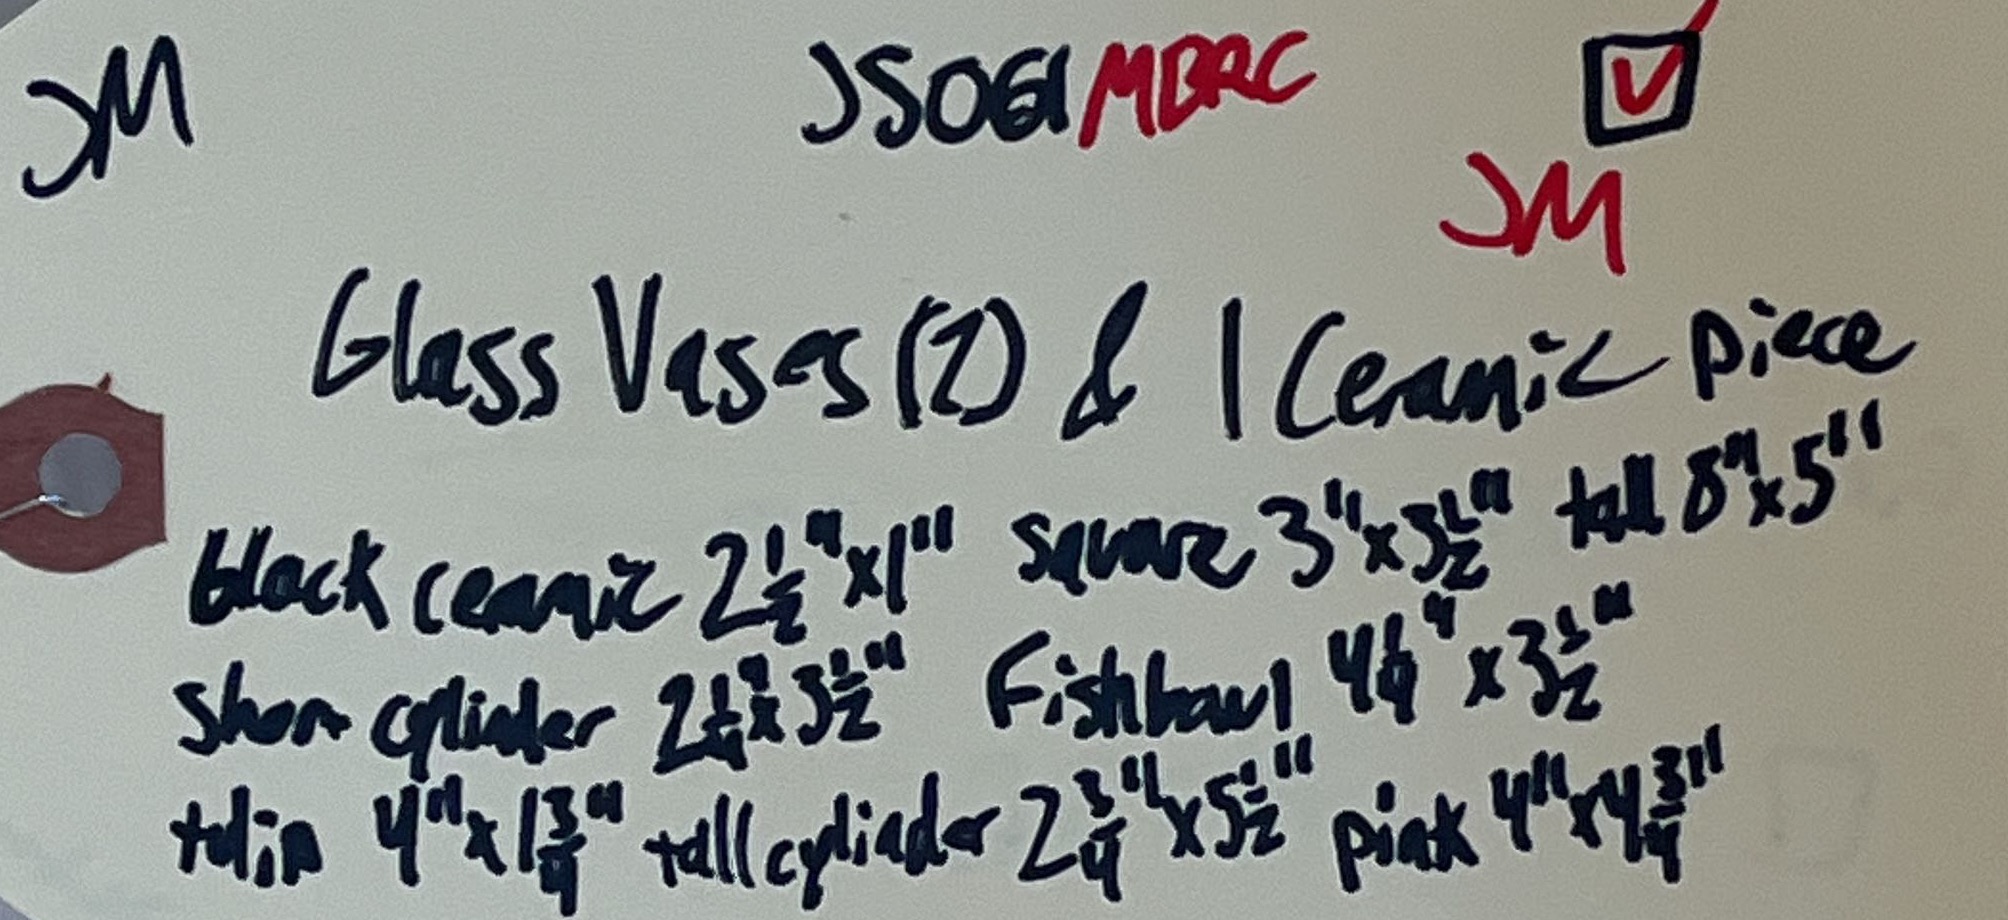 JM JSOGIMBRC
JM
Glass Vases (7) & 1 Ceramic piece
black ceramic 2 1/2" x 1" square 3" x 3 1/2" tall 8" x 5"
Short cylinder 2 1/4" x 3 1/2" Fishbowl 4 1/4" x 3 1/2"
tulip 4" x 1 3/4" tall cylinder 2 3/4" x 5 1/2" pink 4" x 4 3/4"